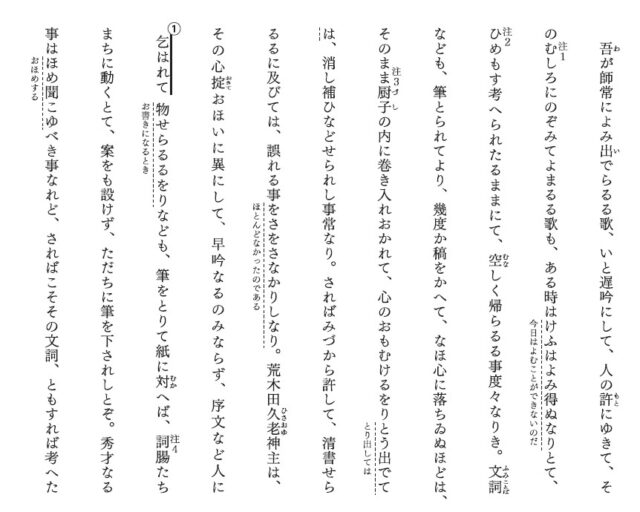 吾が師常によみ出でらるる歌、いと遅吟にして、人の許にゆきて、そ
のむしろにのぞみてよまるる歌も、ある時はけふはよみ得ぬなりとて、
ひめもす考へられたるままにて、空しく帰らるる事度々なりき。文詞
なども、筆とられてより、幾度か稿をかへて、なほ心に落ちゐぬほどは、
そのまま厨子の内に巻き入れおかれて、心のおもむけるをりとう出でて
は、消し補ひなどせられし事常なり。さればみづから許して、清書せら
るるに及びては、誤れる事をさをさなかりしなり。荒木田久老神主は、
その心掟おほいに異にして、早吟なるのみならず、序文など人に
乞はれて物せらるるをりなども、筆をとりて紙に対へば、詞腸たち
まちに動くとて、案をも設けず、ただちに筆を下されしとぞ。秀才なる
事はほめ聞こゆべき事なれど、さればこそその文詞、ともすれば考へた
わ
い
もと
注1
今日はよむことができないのだ
注2
むな
ふみことば
注3
づし
とり出しては
ほとんどなかったのである
ひさおゆ
おきて
①
お書きになるとき
むか
注4
おほめする